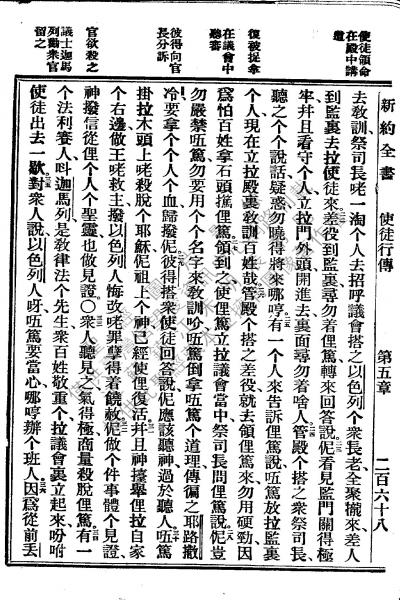 新約全書　使徒行傳　第五章　二百六十八
使徒領命
在殿中講
道
復被捉拿
在議會中
聽審
彼得向官
長分訴
官欲殺之
議士迦馬
列勸衆官
留之
去敎訓祭司長咾一淘个人去招呼議會搭之以色列个衆長老全聚攏來差人
到監裏去拉使徒來差役到監裏尋勿着俚篤轉來回答說伲看見監門關得極
牢幷且看守个人立拉門外頭開進去裏面尋勿着啥人管殿个搭之衆祭司長
聽之个个說話疑惑勿曉得將來哪哼有一个人來告訴俚篤說㕶篤放拉監裏
个人現在立拉殿裏敎訓百姓哉管殿个搭之差役就去領俚篤來勿用硬勁因
爲怕百姓拿石頭㨄俚篤領到之使俚篤立拉議會當中祭司長問俚篤說伲豈
勿嚴禁㕶篤勿要用个个名字來敎訓吤㕶篤倒拿㕶篤个道理傳徧之耶路撒
冷要拿个个人个血歸撥伲彼得搭衆使徒回答說伲應該聽神過於聽人㕶篤
掛拉木頭上咾殺脫个耶穌伲祖上个神已經使俚復活幷且神擡舉俚拉自家
个右邊做王咾救主撥以色列人悔改咾罪孽得着饒赦伲做个件事體个見證
神撥信從俚个人个聖靈也做見證〇衆人聽見之氣得極商量殺脫俚篤有一
个法利賽人呌迦馬列是敎律法个先生衆百姓敬重个拉議會裏立起來吩咐
使徒出去一歇對衆人說以色列人呀㕶篤要當心哪哼辦个班人因爲從前丟